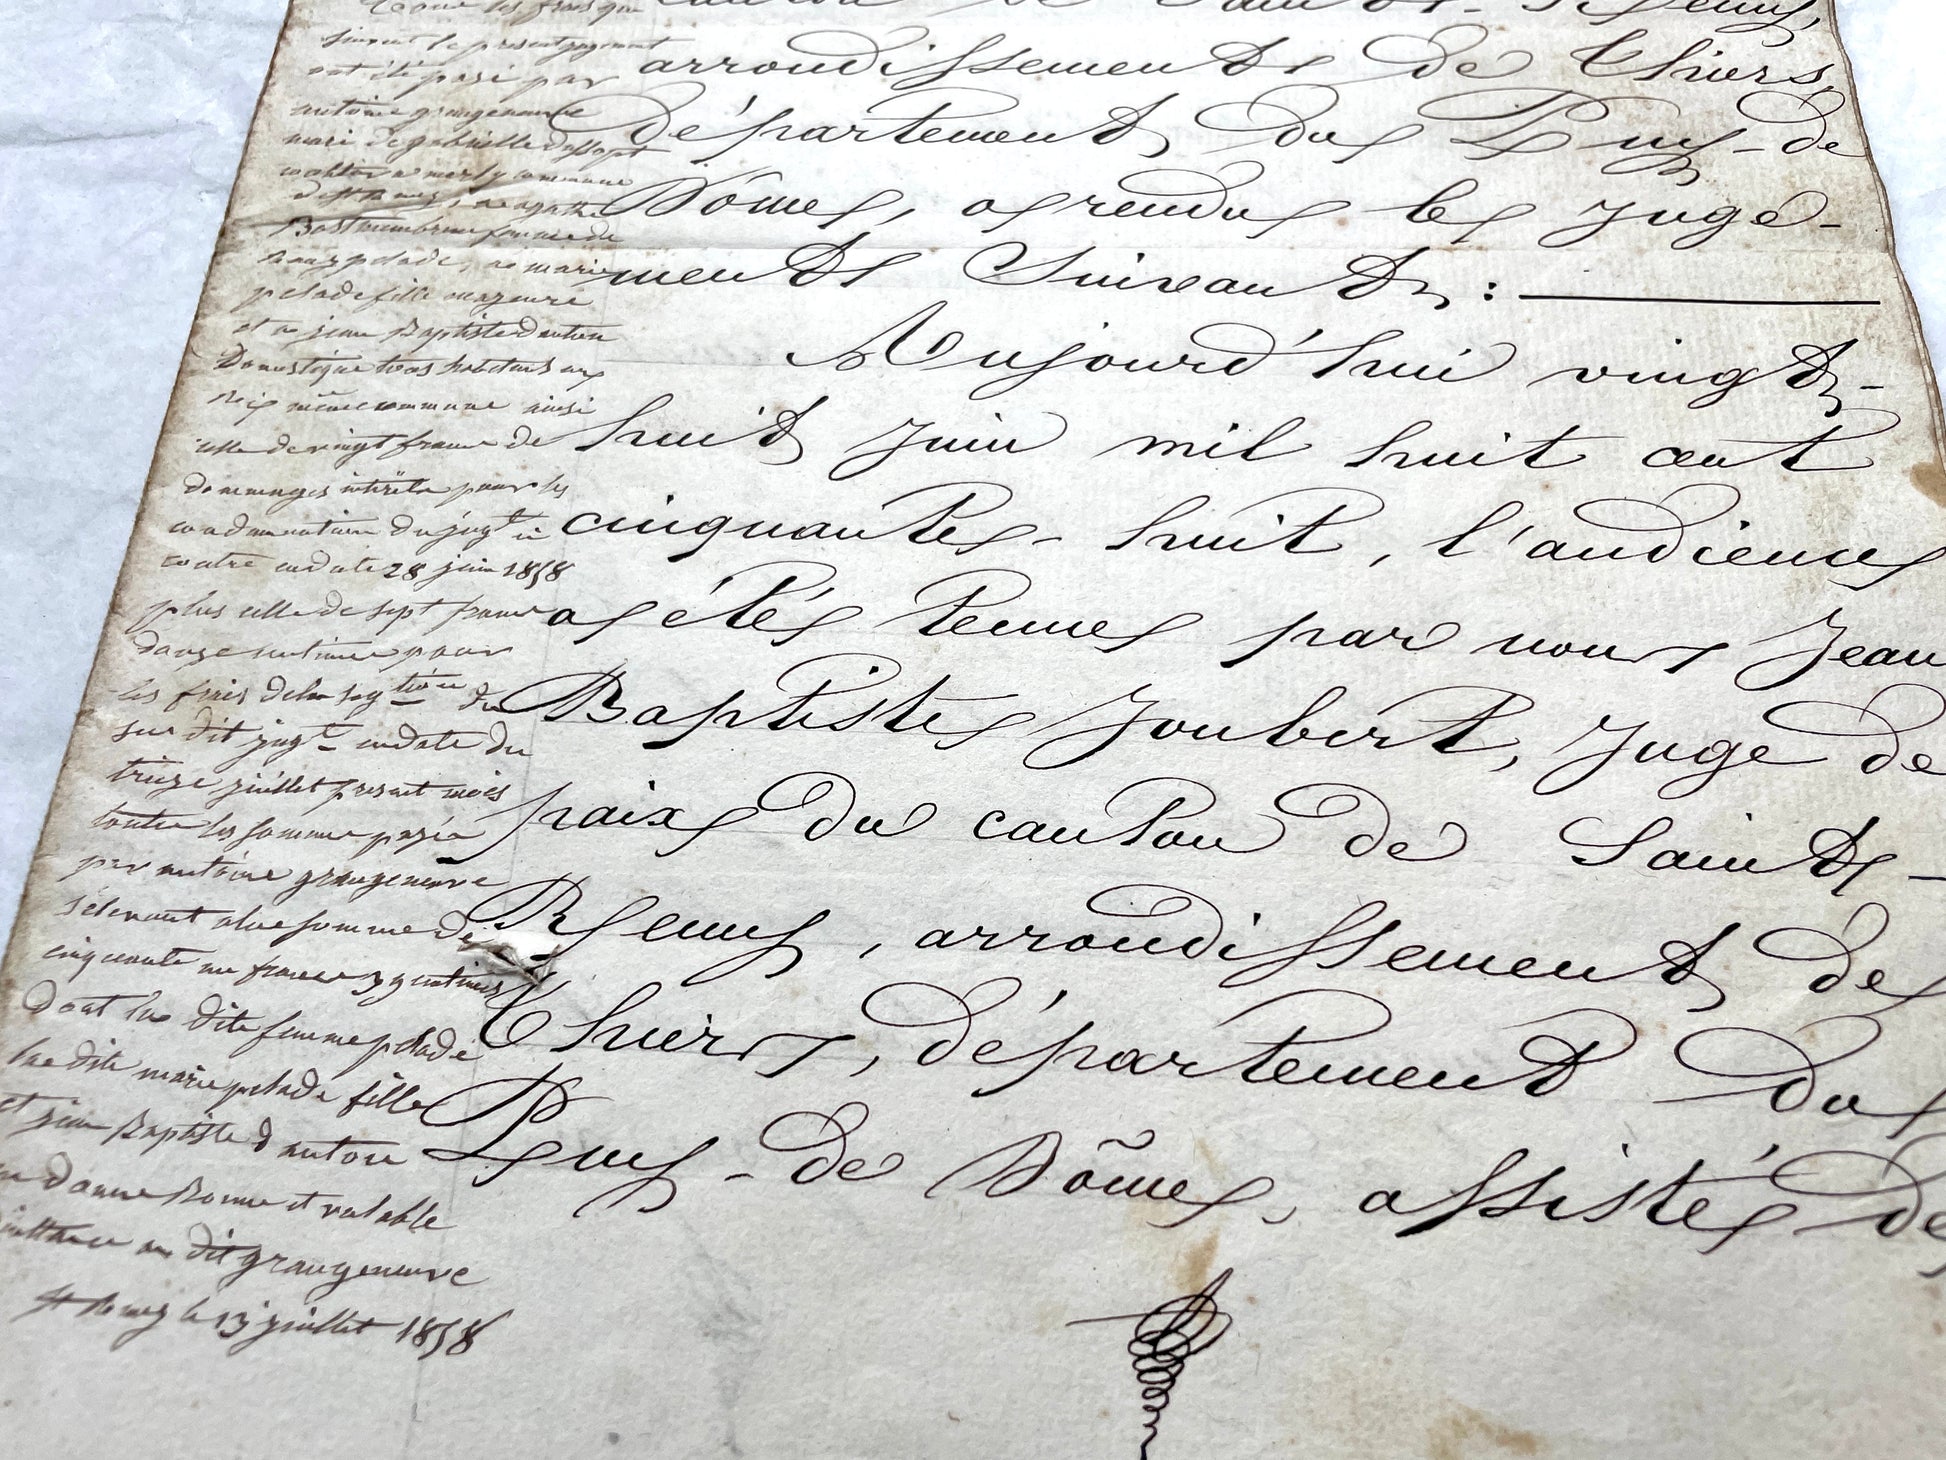 canton de Saint-Remy,
arrondissement de Thiers,
département du Puy-de
Dôme, a rendu le juge-
ment suivant :
Aujourd'hui vingt-
huit juin mil huit cent
cinquante-huit, l'audience
a été tenue par nous Jean
Baptiste Joubert, juge de
paix du canton de Saint-
Remy, arrondissement de
Thiers, département du
Puy-de Dôme, assisté de
les frais que
le present jugement
ont été payé par
antoine grangeneuve
mari de gabrielle
commune
de St Remy, a agathe
femme de
pelade, a marie
pelade fille majeure
et a jean Baptiste dauton
Domestique tous habitants
même commune ainsi
celle de vingt franc de
dommages intérêts pour les
condamnation du jugt ci
contre en date 28 juin 1858
plus celle de sept franc
douze centimes pour
les frais de la du
sur dit jugt en date du
treize juillet present mois
toutes les somme payée
par antoine grangeneuve
s'élevant a la somme de
cinquante un franc 39 centimes
dont la dite femme pelade
la dite marie pelade fille
et jean Baptiste dauton
donne Bonne et valable
quittance au dit grangeneuve
St Remy le 13 juillet 1858